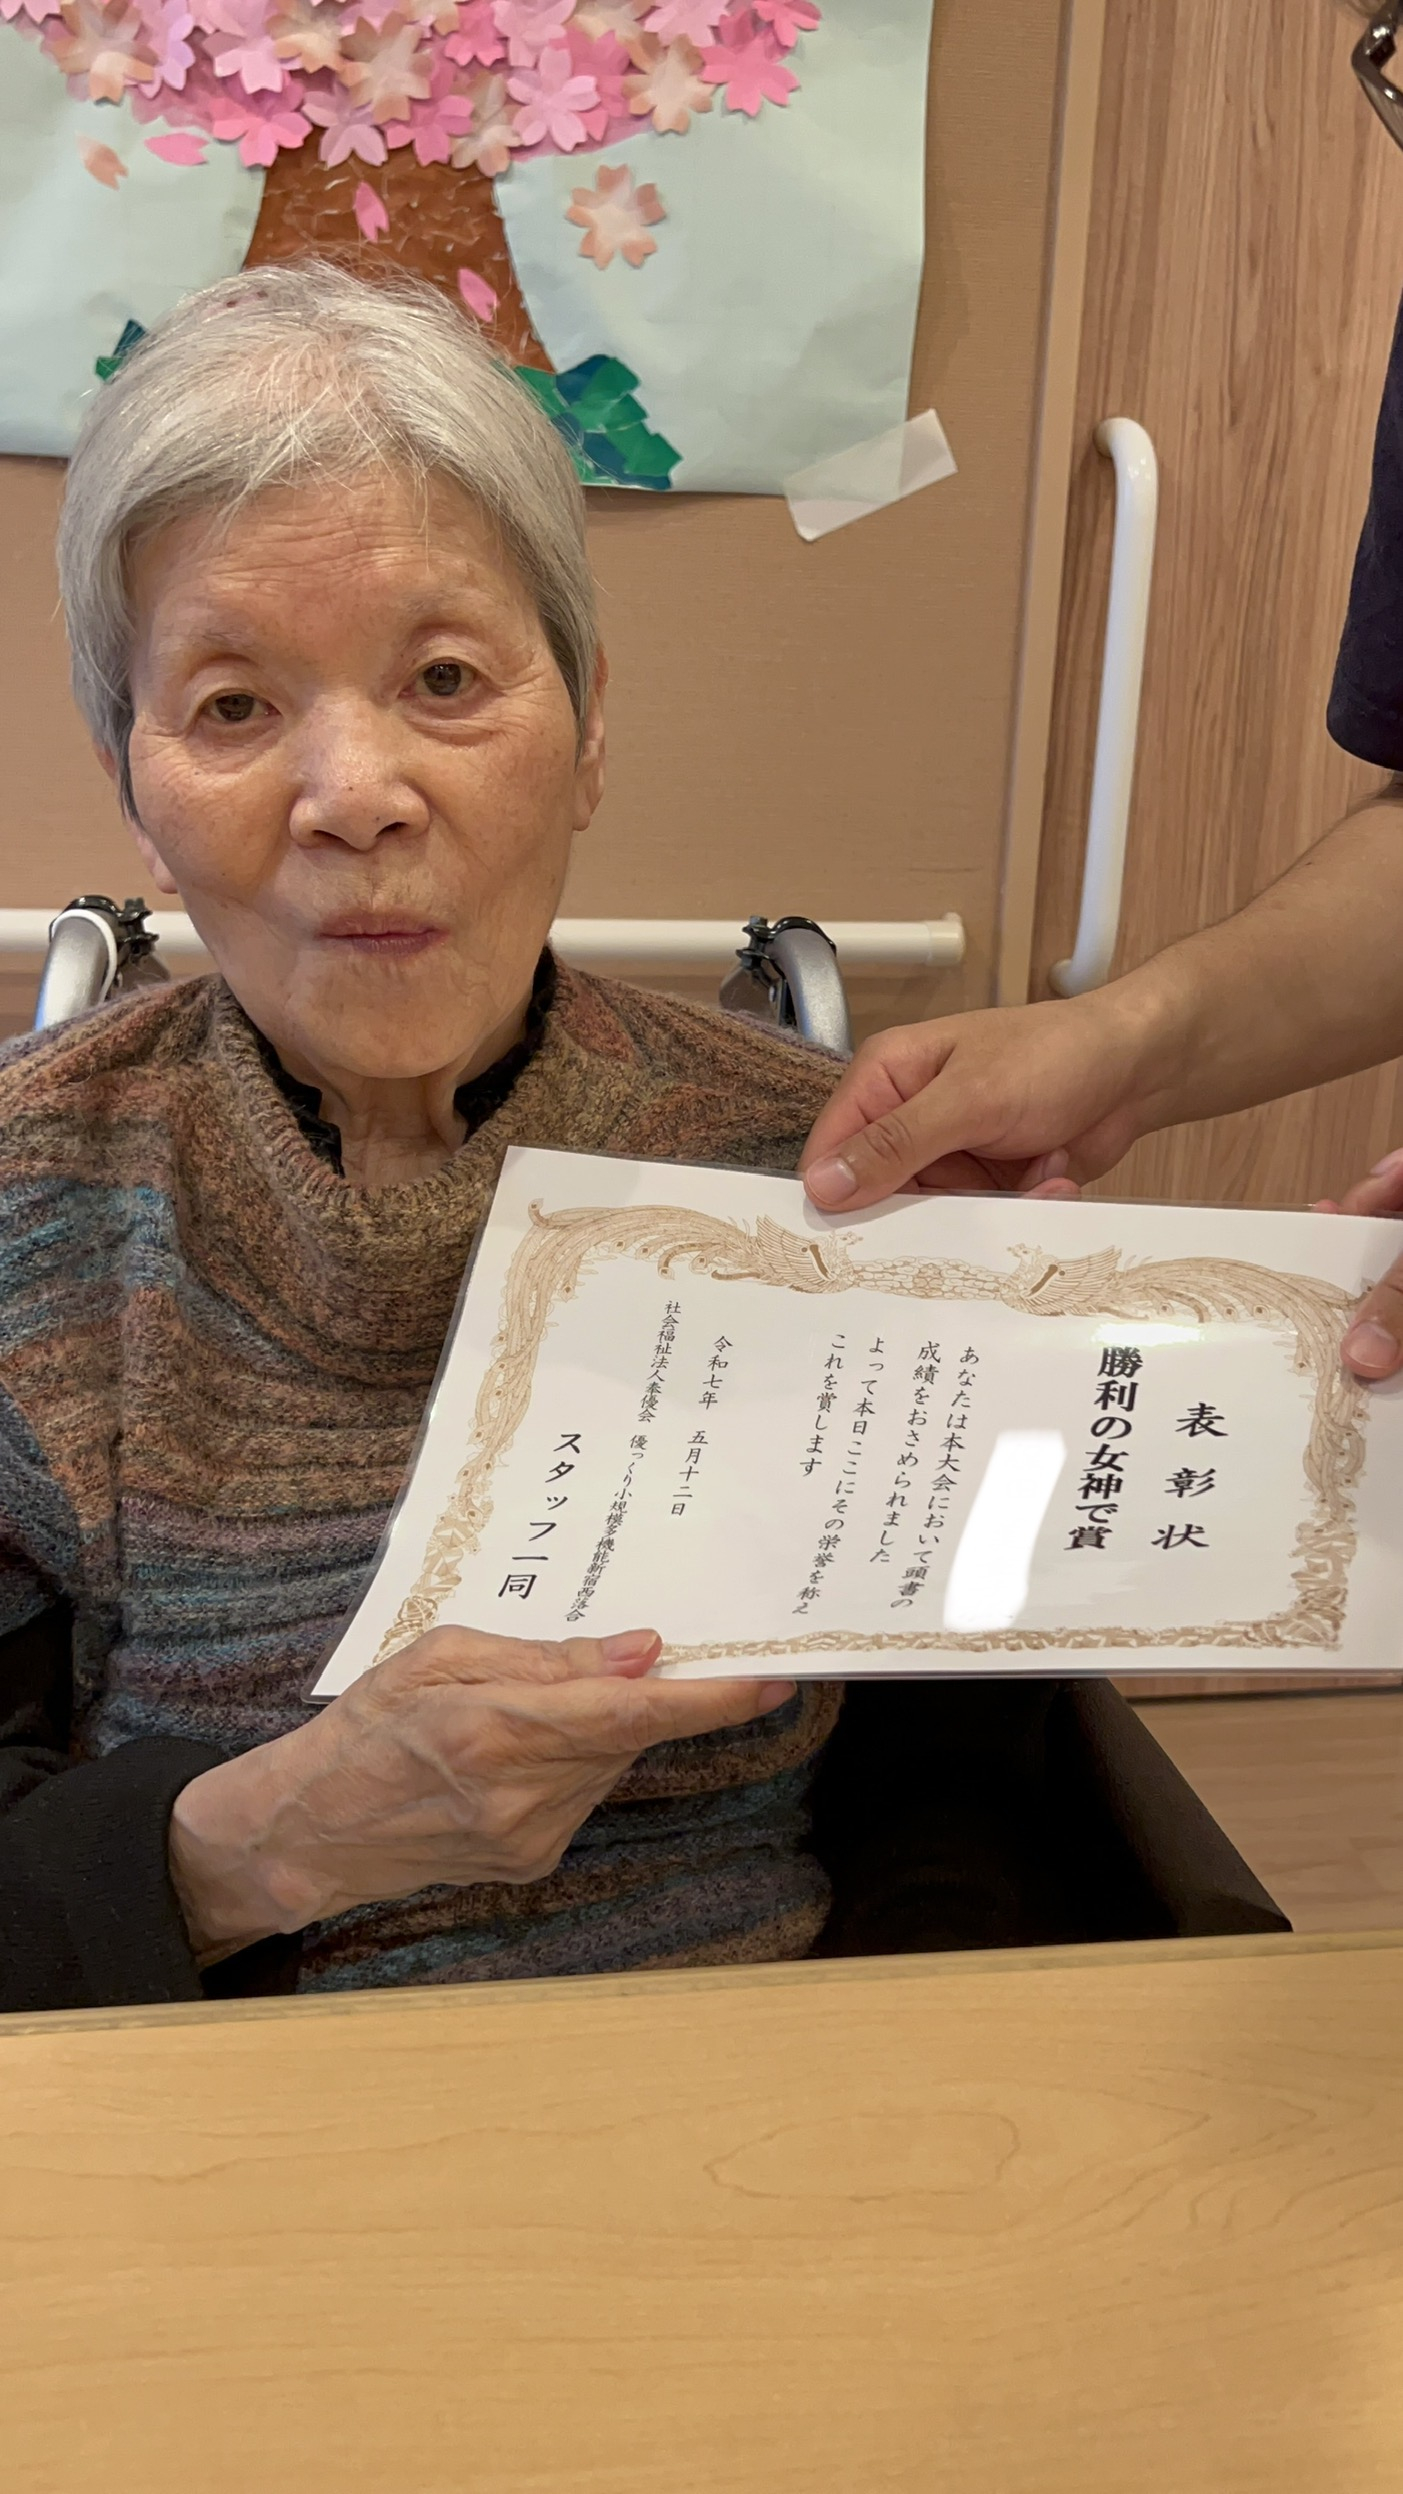 表彰状
勝利の女神で賞
あなたは本大会において頭書の
成績をおさめられました
よって本日ここにその栄誉を称え
これを賞します
令和七年 五月十二日
社会福祉法人奉優会 優っくり小規模多機能新宿西落合
スタッフ一同